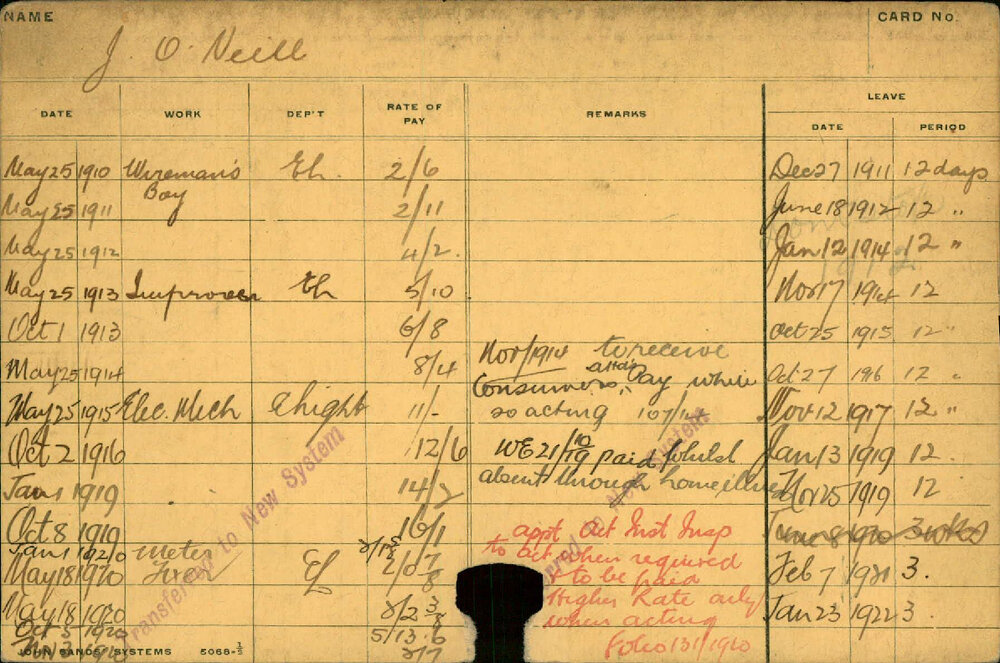 NAME
CARD No.
J. O'Neill
DATE WORK DEP'T RATE OF PAY REMARKS LEAVE
DATE PERIOD
May 25 1910 Wireman's Eh. 2/6 Dec 27 1911 12 days
Boy
May 25 1911 2/11 June 18 1912 12 "
May 25 1912 4/2. Jan 12 1914 12 "
May 25 1913 Improver Eh 5/10 Nov 17 1914 12
Oct 1 1913 6/8 Oct 25 1915 12 "
Nov/1914 to receive
May 25 1914 8/4 Oct 27 1916 12 "
Consumers attce Pay while
May 25 1915 Elec. Mech Elight 11/- so acting 107/14 Nov 12 1917 12 "
Oct 2 1916 12/6 WE 21/10/19 paid whilst Jan 13 1919 12.
Jan 1 1919 14/2 absent through home illness Nov 25 1919 12
Oct 8 1919 16/1 appt Act Inst Insp June 8 1920 3 wks
Jan 1 1920 Meter to act when required
May 18 1920 Fixer & to be paid Feb 7 1921 3.
May 18 1920 Higher Rate only Jan 23 1922 3.
Oct 5 1920 5/13.6 when acting
2/7 Folio 131/1920
Transferred to New System
Transferred to New System
JOHN SANDS SYSTEMS 5068-